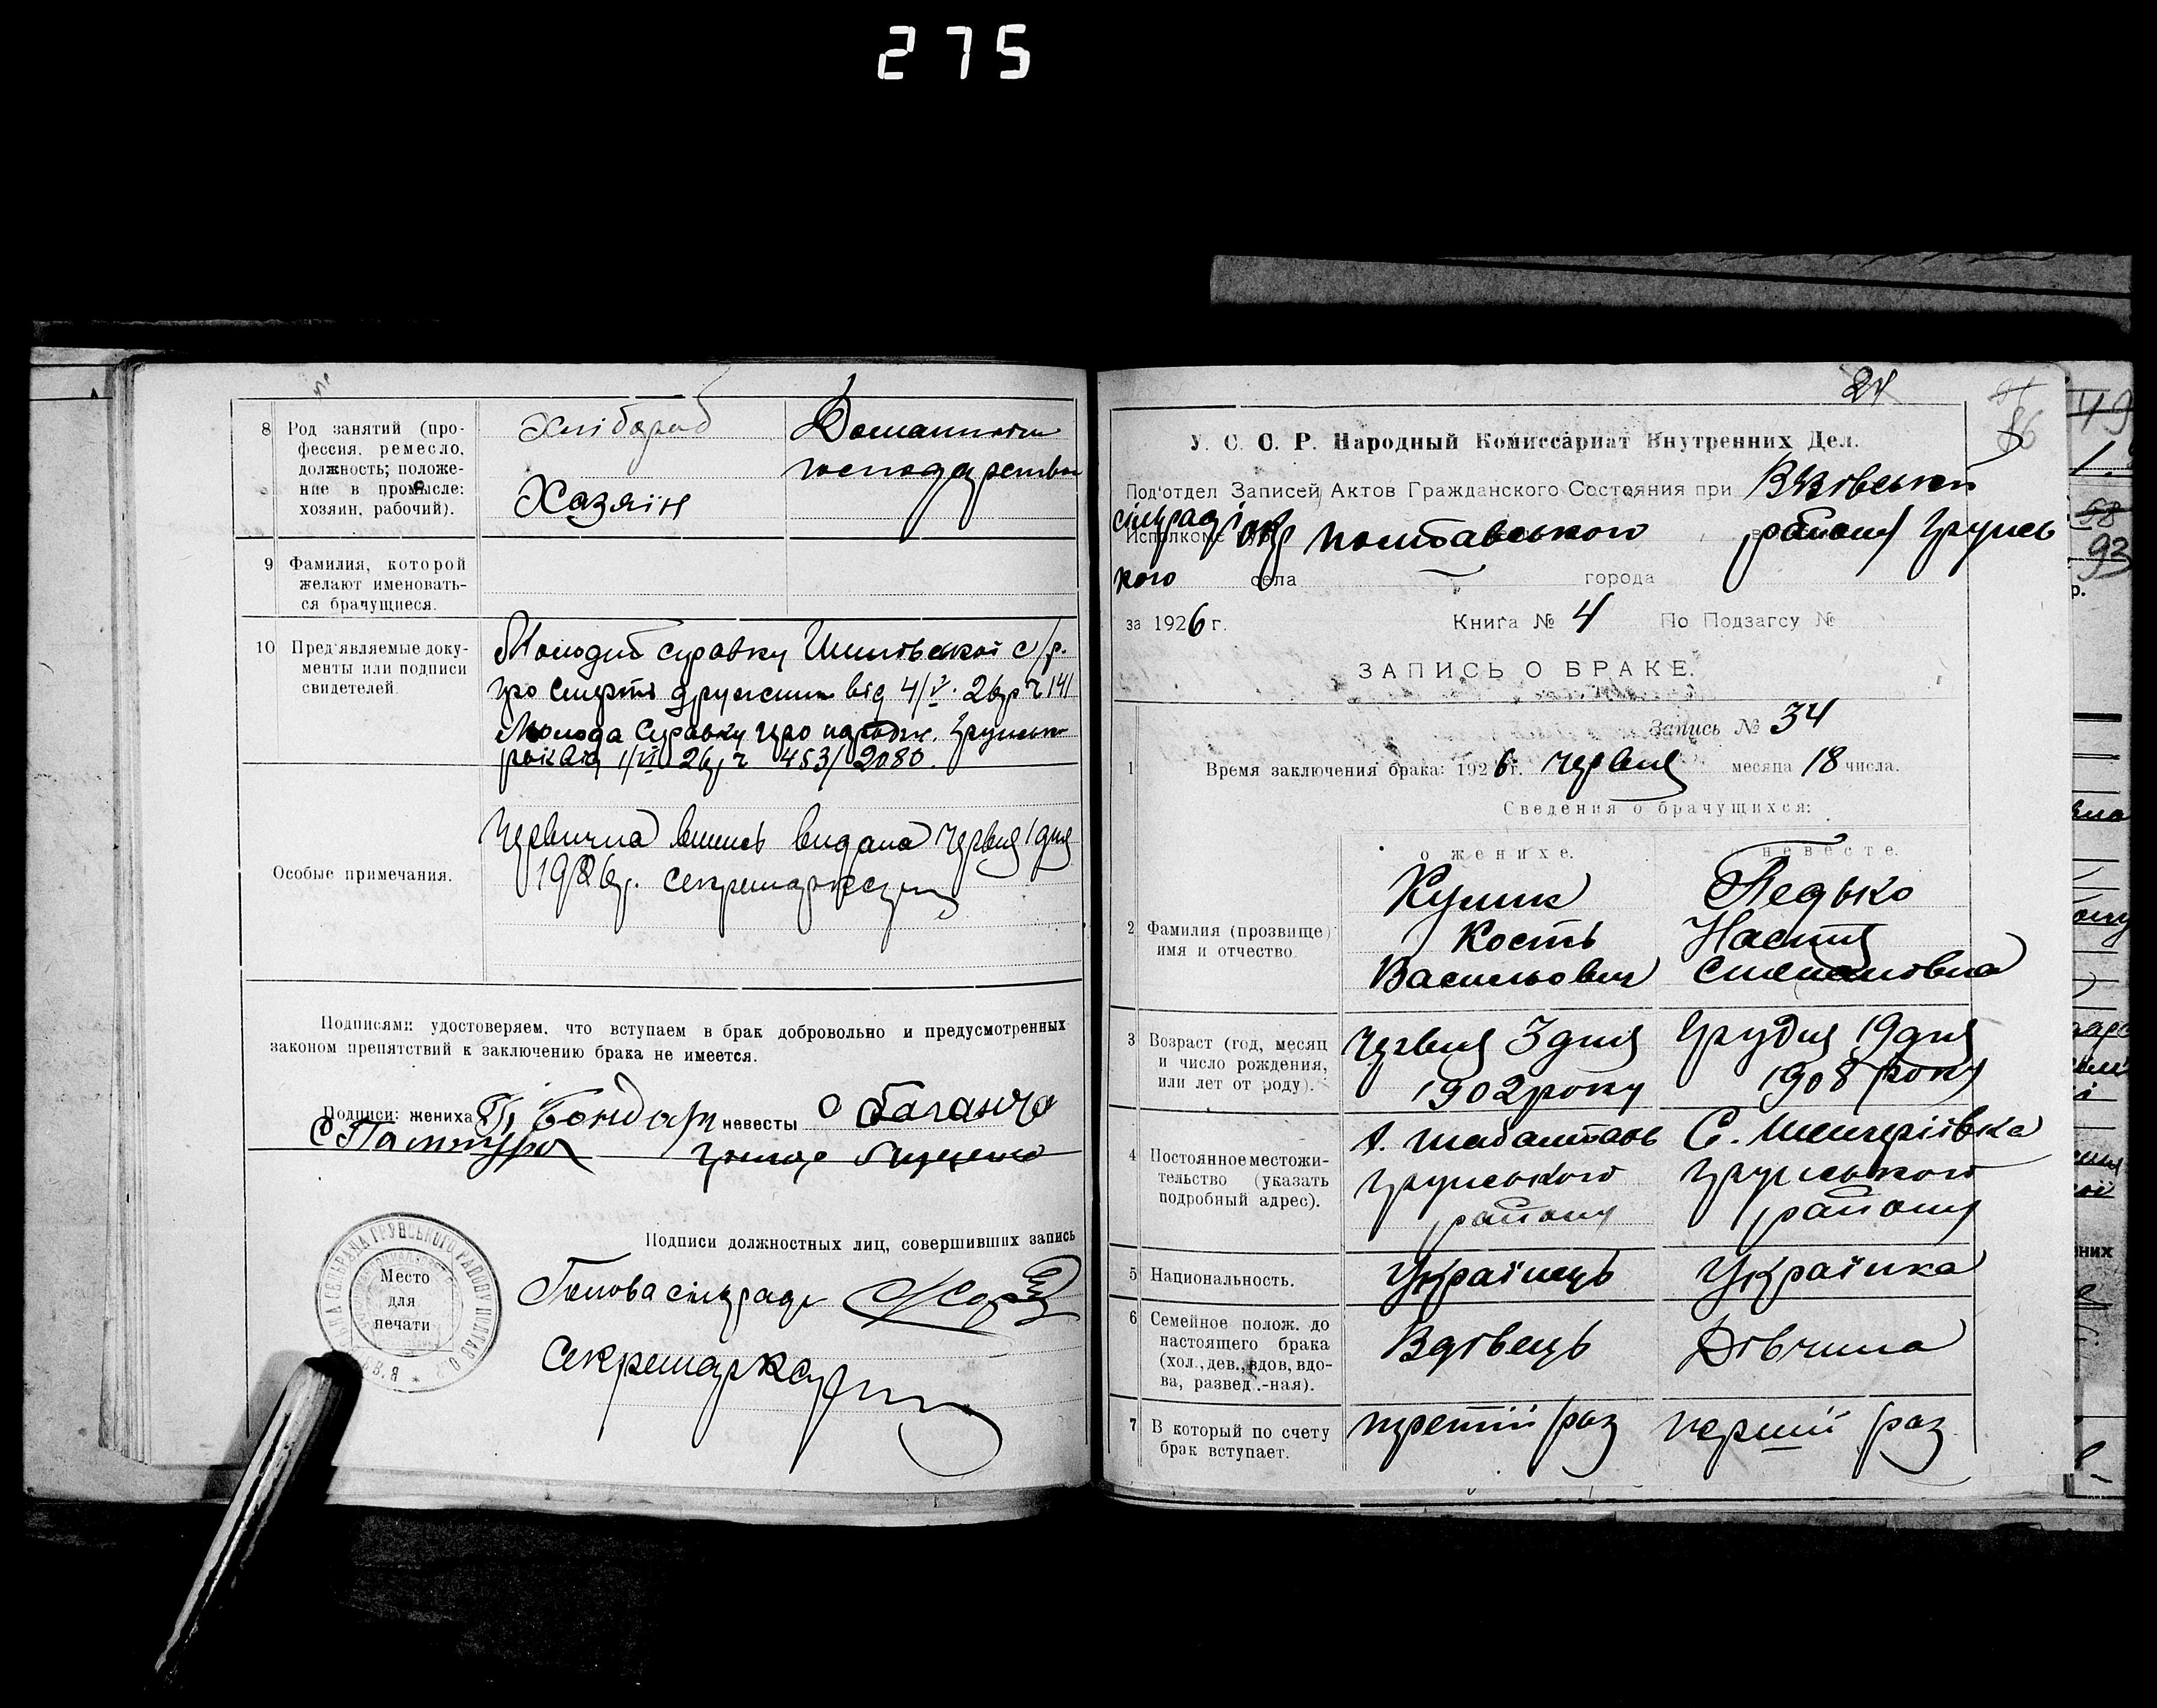 275
8 Род занятий (про-
фессия, ремесло,
должность; положе-
ние в промысле:
хозяин, рабочий).
Хлібороб
Хазяїн
Домашнєм
господарством
9 Фамилия, которой
желают именовать-
ся брачущиеся.
10 Пред'являемые доку-
менты или подписи
свидетелей.
Молодий справку с/р.
про смерть дружини від 4/V. 26 р ч 141
Молода справку про народж. Грунськ
від 1/VI 26 р ч 453/2080.
Особые примечания.
Первична випись видана Червня 1 дня
1926 р. Секретар
Подписями удостоверяем, что вступаем в брак добровольно и предусмотренных
законом препятствий к заключению брака не имеется.
Подписи: жениха Бондар невесты
Подписи должностных лиц, совершивших запись
Голова сільради
Секретарь
Место
для
печати
24
86
У. С. С. Р. Народный Комиссариат Внутренних Дел.
Под'отдел Записей Актов Гражданского Состояния при Вязівській
сільраді Исполкоме окр Полтавського района Грунсь
кого села города
за 1926 г. Книга № 4 По Подзагсу №
ЗАПИСЬ О БРАКЕ.
Запись № 34
1 Время заключения брака: 1926 г. червня месяца 18 числа.
Сведения о брачущихся:
о женихе. о невесте.
2 Фамилия (прозвище)
имя и отчество.
Кулик
Кость
Васильович
Педько
Настя
Степановна
3 Возраст (год, месяц
и число рождения,
или лет от роду).
Червня 3 дня
1902 року
Грудня 19 дня
1908 року
4 Постоянное местожи-
тельство (указать
подробный адрес).
Грунського
району
С.
Грунського
району
5 Национальность.
Українець
Українка
6 Семейное полож. до
настоящего брака
(хол., дев., вдов, вдо-
ва, развед.-ная).
Вдівець
Дівчина
7 В который по счету
брак вступает.
третій раз
перший раз